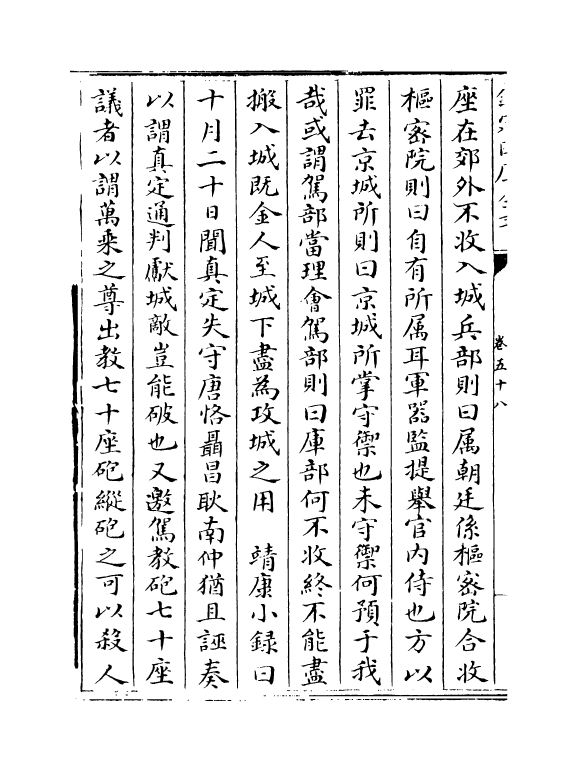 卷五十八
座在郊外不收入城兵部則曰属朝廷係樞密院合收
樞密院則曰自有所属耳軍器監提舉官内侍也方以
罪去京城所則曰京城所掌守禦也未守禦何預于我
哉或謂駕部當理會駕部則曰庫部何不收終不能盡
搬入城既金人至城下盡為攻城之用　靖康小錄曰
十月二十日聞真定失守唐恪聶昌耿南仲猶且誣奏
以謂真定通判獻城敵豈能破也又邀駕教砲七十座
議者以謂萬乘之尊出教七十座砲縱砲之可以殺人